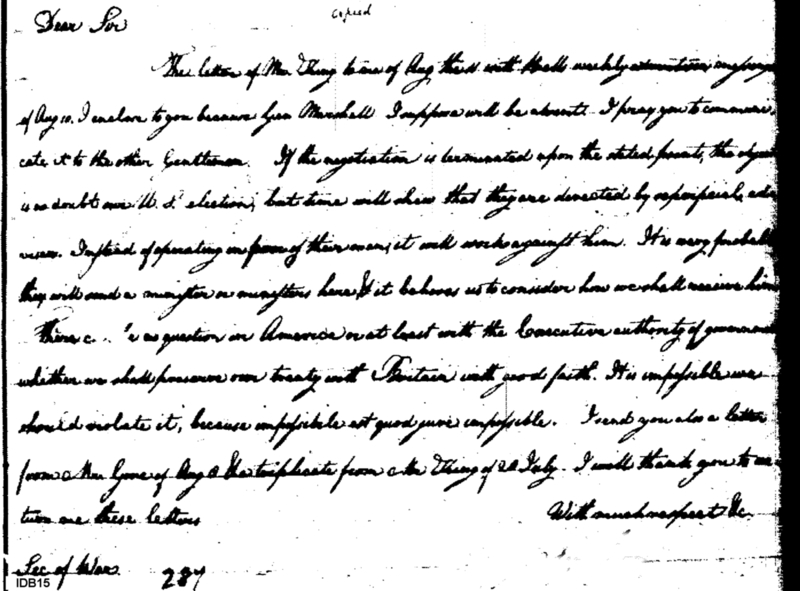 copied
Dear Sir
The letter of Mr. King to me of Aug. the with weekly
of Aug 10. I enclose to you because Gen Marshall I suppose will be absent. I pray you to communi
cate it to the other Gentlemen. If the negotiation is terminated upon the stated points, the object
is no doubt our U. S. election, but time will shew that they are directed by superficial, ad
visers. Instead of operating in favor of their man, it will work against him. It is very probable
they will send a minister or ministers here & it behoves us to consider how we shall receive him
There question in America or at least with the Executive authority of government
whether we shall preserve our treaty with Britain with good faith. It is impossible we
should violate it, because impossibile est quod jure impossibile. I send you also a letter
from Mr. Gore of Aug & the triplicate from Mr. King of 28 July. I will thank you to re
turn me these letters
With much respect &c.
Sec of War.
IDB15
287